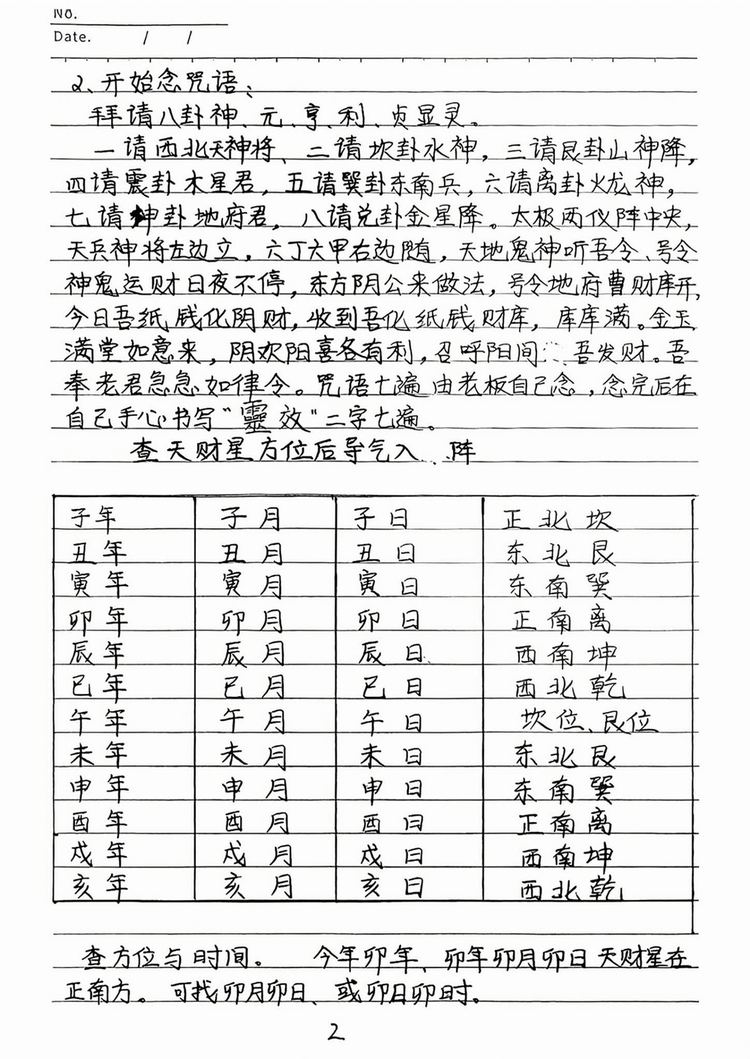 No.
Date. / /
2、开始念咒语：
拜请八卦神、元、亨、利、贞显灵。
一请西北天神将、二请坎卦水神，三请艮卦山神降，
四请震卦木星君，五请巽卦东南兵，六请离卦火龙神，
七请坤卦地府君，八请兑卦金星降。太极两仪阵中央，
天兵神将左边立，六丁六甲右边随，天地鬼神听吾令、号令
神鬼运财日夜不停，东方阴公来做法，号令地府曹财库开，
今日吾纸钱化阴财，收到吾化纸钱财库，库库满。金玉
满堂如意来，阴欢阳喜各有利，召呼阳间 吾发财。吾
奉老君急急如律令。咒语七遍由老板自己念，念完后在
自己手心书写“靈效”二字七遍。
查天财星方位后导气入、阵
子年 子月 子日 正北坎
丑年 丑月 丑日 东北艮
寅年 寅月 寅日 东南巽
卯年 卯月 卯日 正南离
辰年 辰月 辰日 西南坤
巳年 巳月 巳日 西北乾
午年 午月 午日 坎位、艮位
未年 未月 未日 东北艮
申年 申月 申日 东南巽
酉年 酉月 酉日 正南离
戌年 戌月 戌日 西南坤
亥年 亥月 亥日 西北乾
查方位与时间。 今年卯年、卯年卯月卯日天财星在
正南方。可找卯月卯日、或卯日卯时。
2